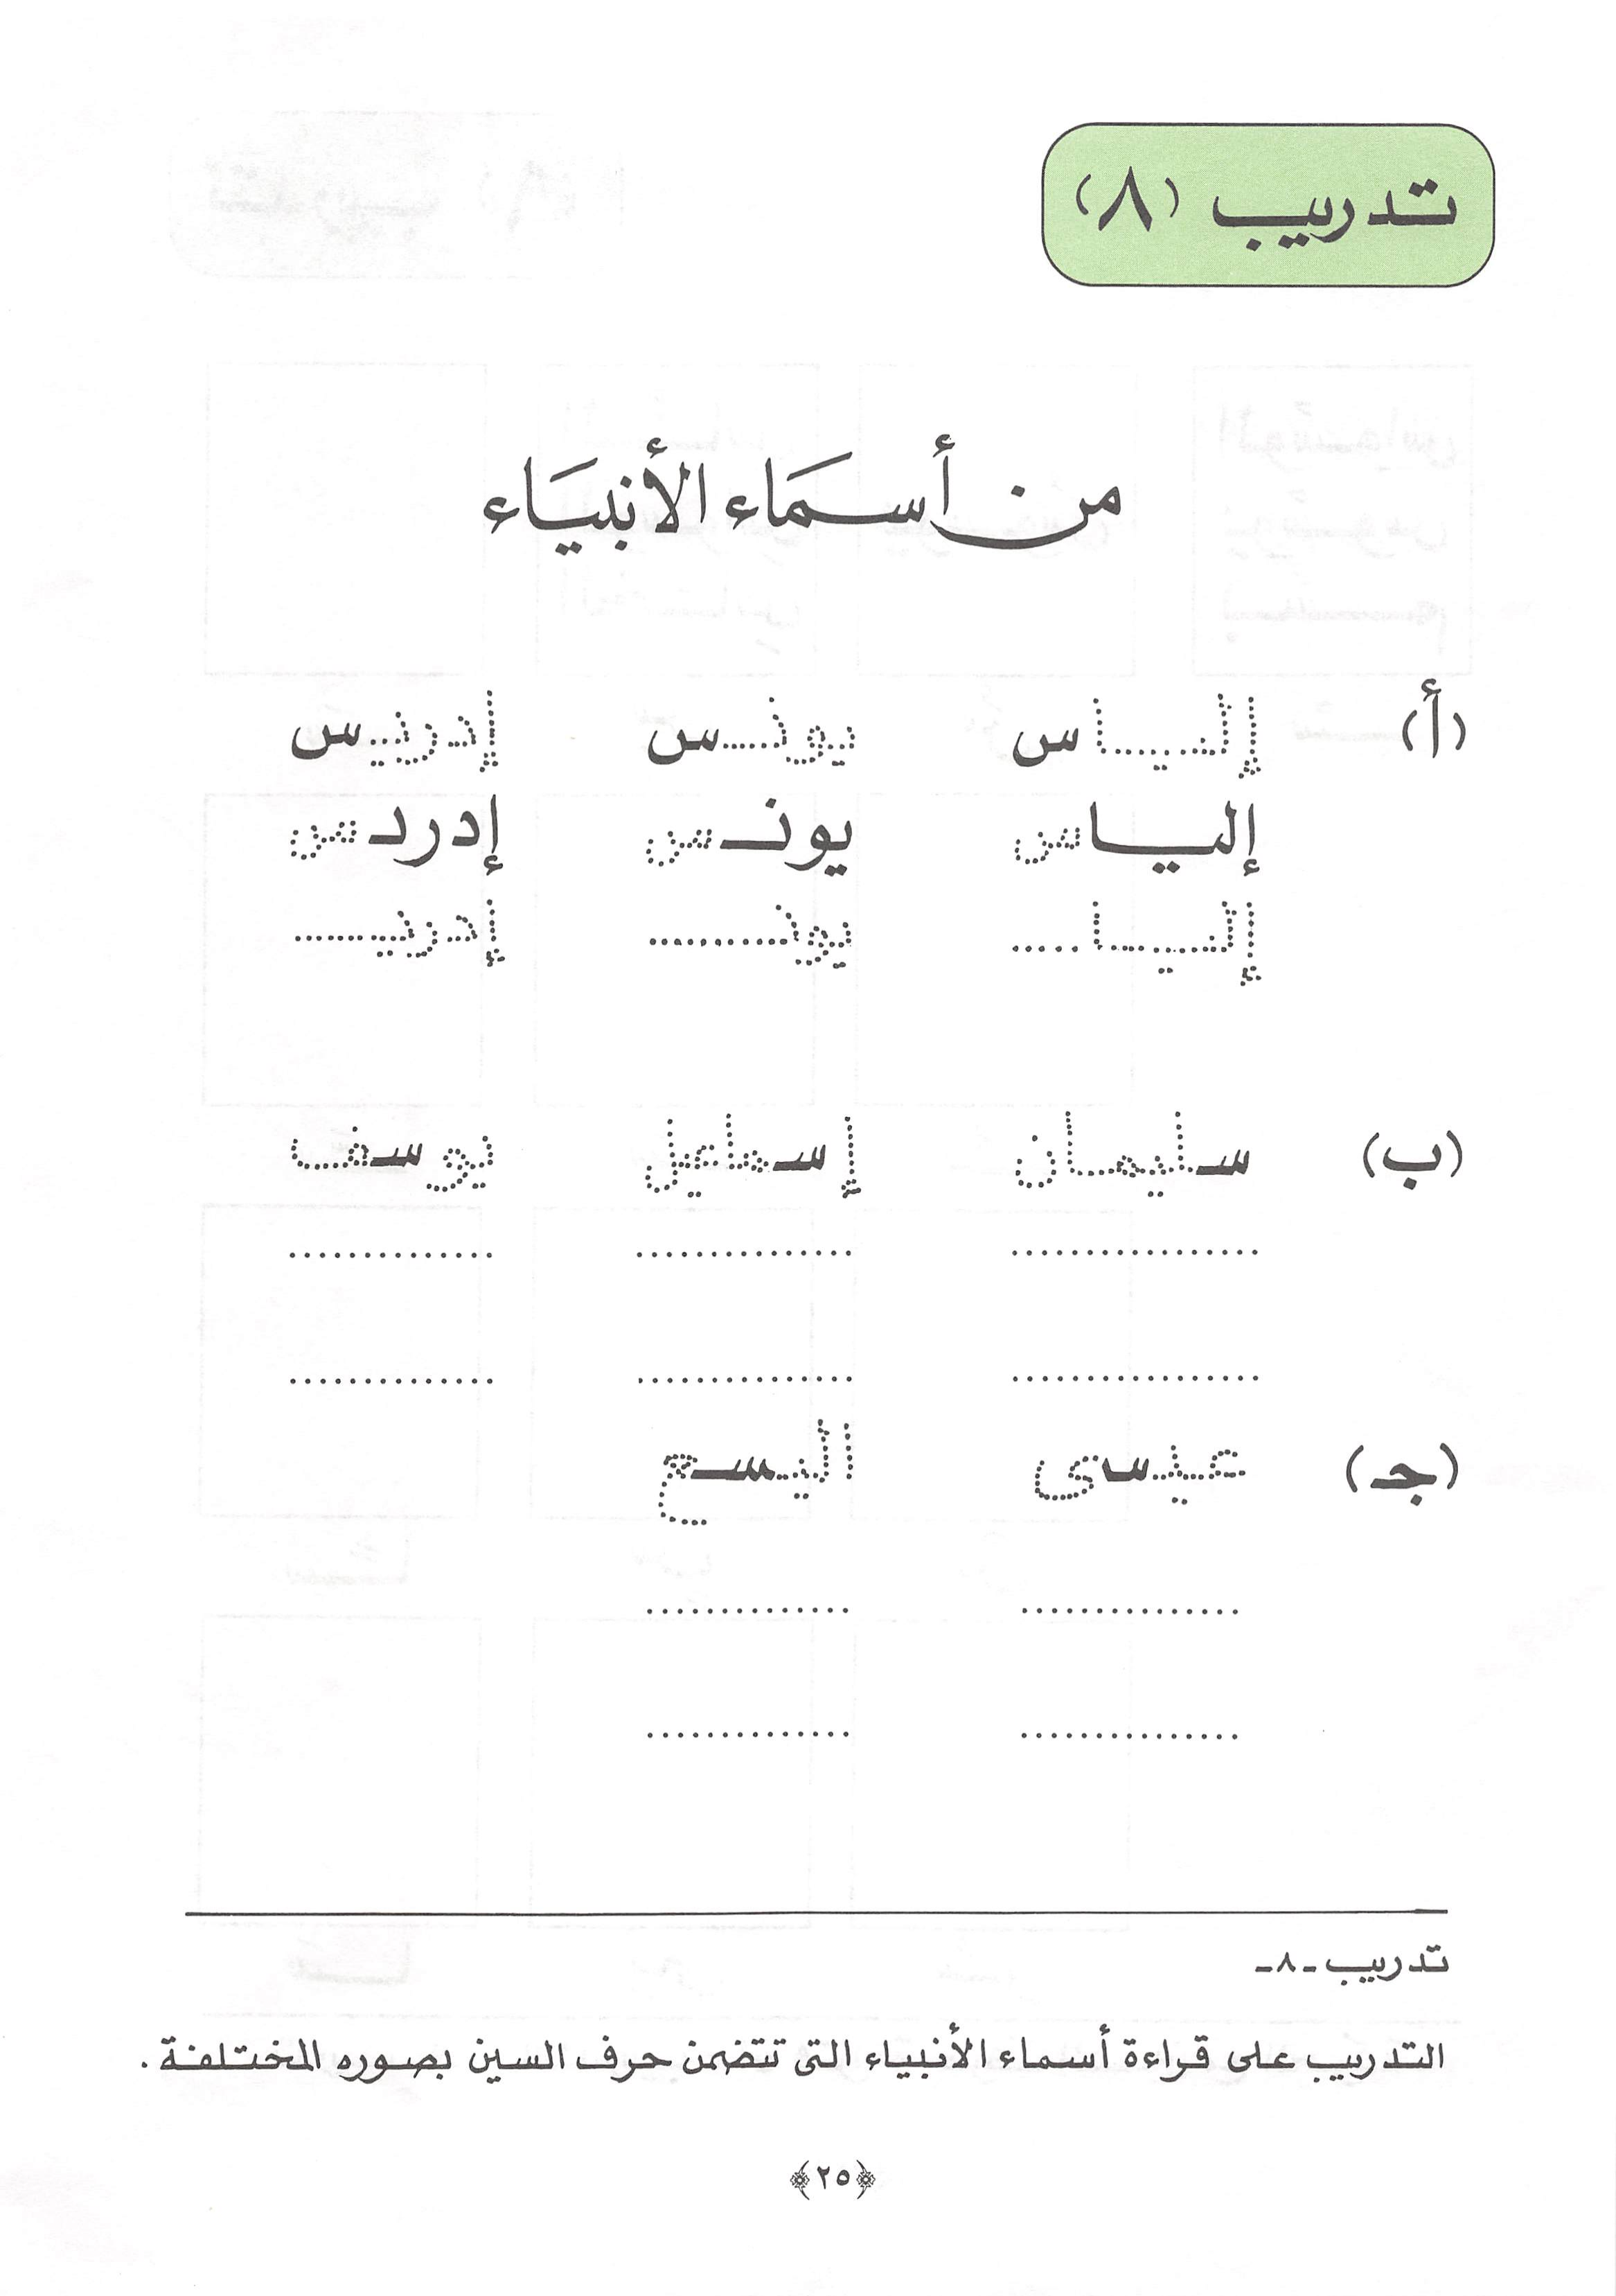 تدريب (٨)
من أسماء الأنبياء
(أ) إلياس يونس إدريس
إلياس يونس إدردس
إليا..... يونـ.......... إدريـ......
(ب) سليمان إسماعيل يوسف
................. ............... ..............
................. ............... ..............
(جـ) عيسى اليسع
............... ..............
............... ..............
تدريب -٨-
التدريب على قراءة أسماء الأنبياء التى تتضمن حرف السين بصوره المختلفة .
﴿٢٥﴾